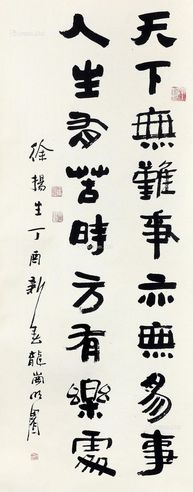 天下無難事亦無易事
人生為苦時方有樂處
徐揚生丁酉新春龍崗